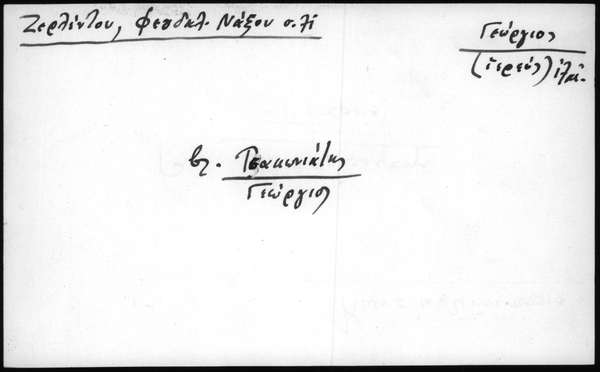 Ζερλέντου, Φεουδαλ. Νάξου σ. λί
Γεώργιος
(ἱερεύς)
βλ. Τσακωνιάτης
Γεώργιος